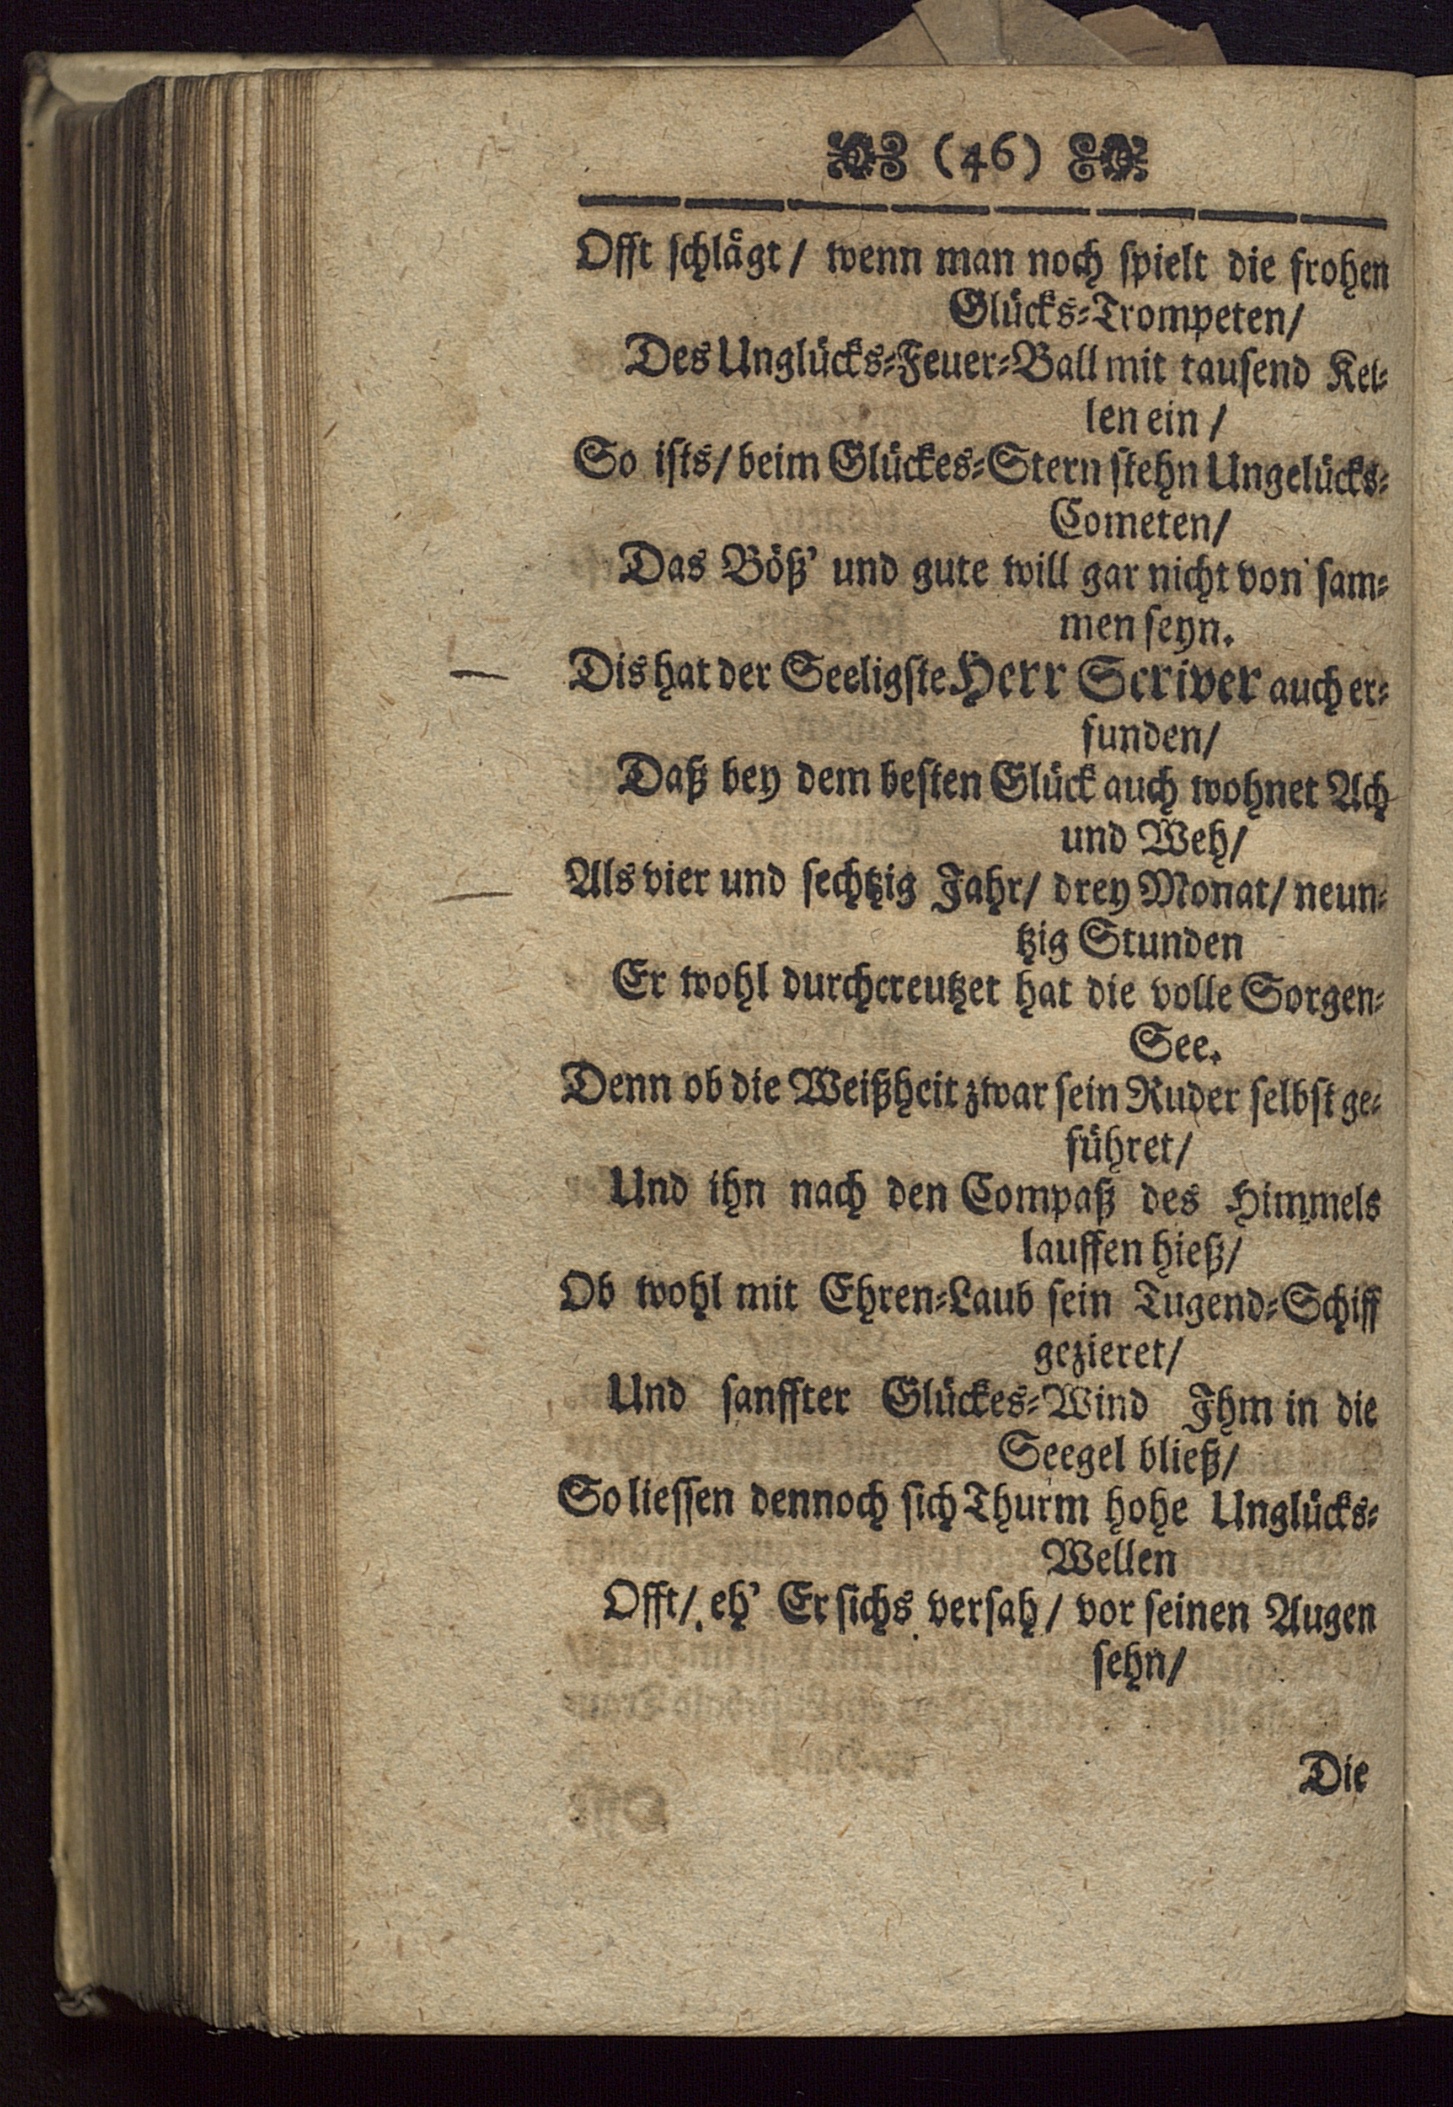 (46)
Offt schlägt/ wenn man noch spielt die frohen
Glücks-Trompeten/
Des Unglücks-Feuer-Ball mit tausend Kel-
len ein /
So ists/ beim Glückes-Stern stehn Ungelücks-
Cometen/
Das Böß' und gute will gar nicht von sam-
men seyn.
Dis hat der Seeligste Herr Scriver auch er-
funden/
Daß bey dem besten Glück auch wohnet Ach
und Weh/
Als vier und sechtzig Jahr/ drey Monat/ neun-
tzig Stunden
Er wohl durchcreutzet hat die volle Sorgen-
See.
Denn ob die Weißheit zwar sein Ruder selbst ge-
führet/
Und ihn nach den Compaß des Himmels
lauffen hieß/
Ob wohl mit Ehren-Laub sein Tugend-Schiff
gezieret/
Und sanffter Glückes-Wind Ihm in die
Seegel bließ/
So liessen dennoch sich Thurm hohe Unglücks-
Wellen
Offt/ eh' Er sichs versah/ vor seinen Augen
sehn/
Die